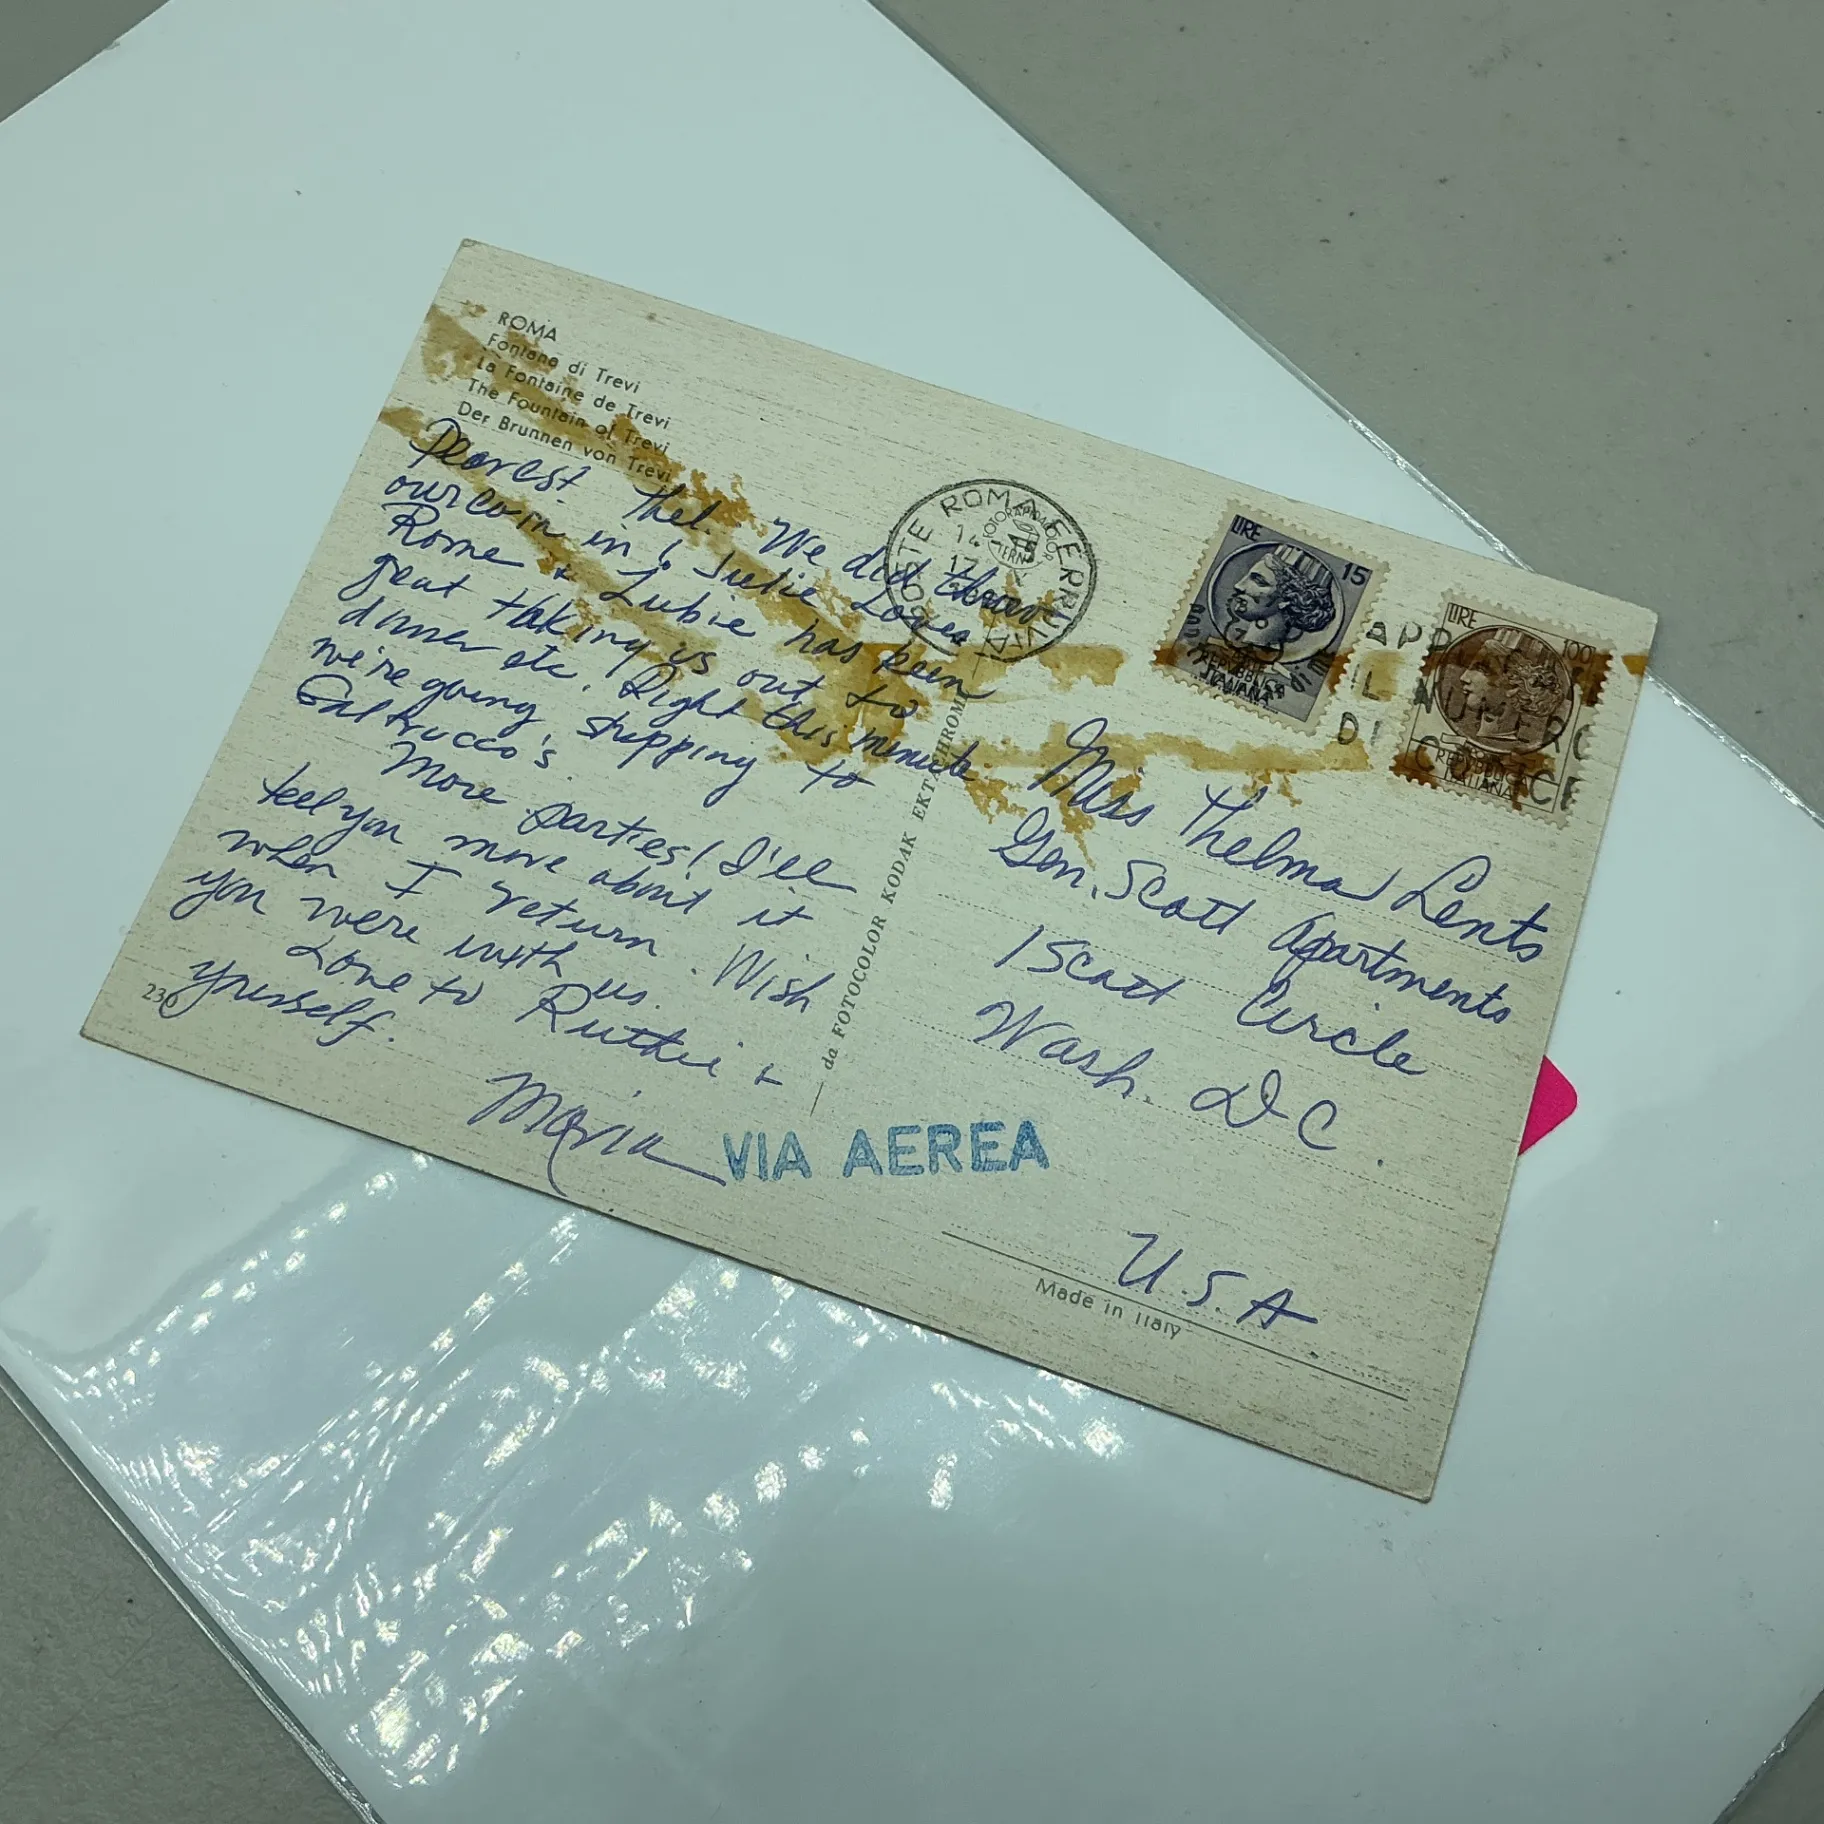 ROMA
Fontana di Trevi
La Fontaine de Trevi
The Fountain of Trevi
Der Brunnen von Trevi
Dearest Thel. We did throw
our coin in & Julie Loves
Rome & Lubie has been
great taking us out to
dinner etc. Right this minute
we're going shopping to
Galtrucco's.
More parties! I'll
tell you more about it
when I return. Wish
you were with us.
Love to Ruthie &
yourself.
Maria
236
da FOTOCOLOR KODAK EKTACHROME
POSTE ROMA FERROVIA
14
LIRE 15
REPUBBLICA
ITALIANA
LIRE 100
REPUBBLICA
ITALIANA
IL NUMERO
DI CODICE
Miss Thelma Lents
Gen. Scott Apartments
1 Scott Circle
Wash. DC.
U.S.A
VIA AEREA
Made in Italy